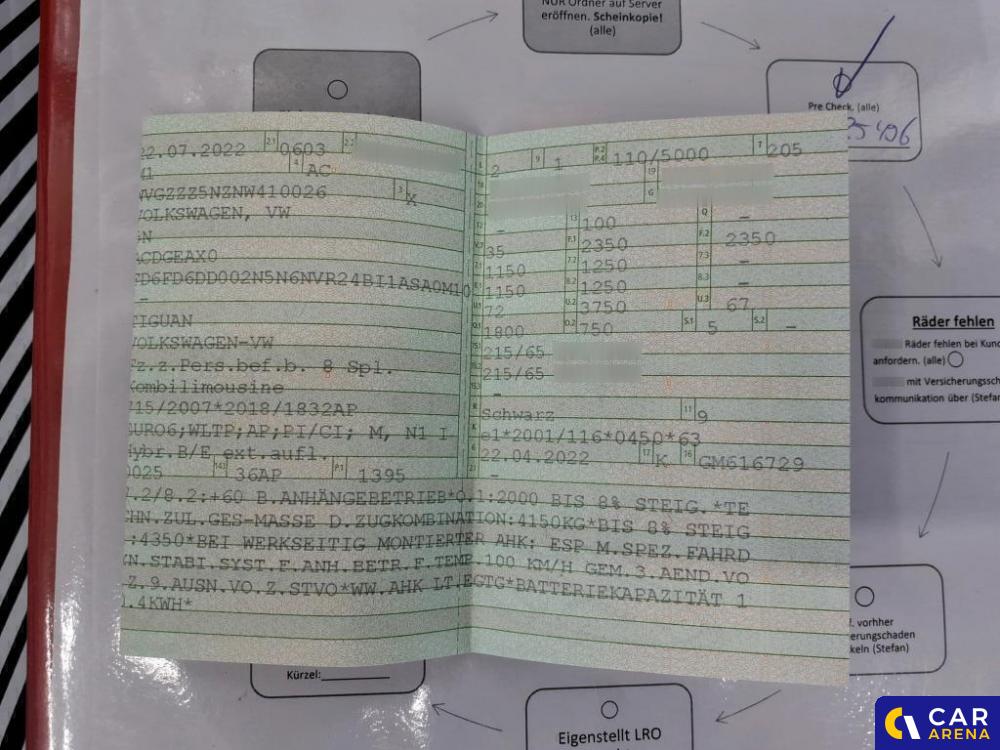 NUR Ordner auf Server
eröffnen. Scheinkopie!
(alle)
Pre Check. (alle)
2.07.2022 2.1 0603 2.2
4 AC
WVGZZZ5NZNW410026 3 X
VOLKSWAGEN, VW
5N
ACDGEAX0
FD6FD6DD002N5N6NVR24BI1ASA0M10
–
TIGUAN
VOLKSWAGEN-VW
Fz.z.Pers.bef.b. 8 Spl.
Kombilimousine
715/2007*2018/1832AP
EURO6;WLTP;AP;PI/CI; M, N1 I
Hybr.B/E ext.aufl.
0025 36AP P.1 1395
2 9 1 P.2 P.4 110/5000 T 205
19
G
– 13 100 Q –
35 F.1 2350 F.2 2350
1150 7.2 1250 7.3 –
1150 8.2 1250 8.3 –
72 U.2 3750 U.3 67
1800 O.2 750 S.1 5 S.2 –
215/65
215/65
–
Schwarz 11 9
e1*2001/116*0450*63
22.04.2022 17 K 16 GM616729
–
7.2/8.2:+60 B.ANHÄNGEBETRIEB*O.1:2000 BIS 8% STEIG.*TE
CHN.ZUL.GES-MASSE D.ZUGKOMBINATION:4150KG*BIS 8% STEIG
.:4350*BEI WERKSEITIG MONTIERTER AHK: ESP M.SPEZ.FAHRD
YN.STABI.SYST.F.ANH.BETR.F.TEMP.100 KM/H GEM.3.AEND.VO
Z.9.AUSN.VO.Z.STVO*WW.AHK LT.EGTG*BATTERIEKAPAZITÄT 1
0.4KWH*
Räder fehlen
Räder fehlen bei Kund
anfordern. (alle)
mit Versicherungssch
kommunikation über (Stefan
vorhher
erungschaden
keln (Stefan)
Kürzel:
Eigenstellt LRO
CAR
ARENA